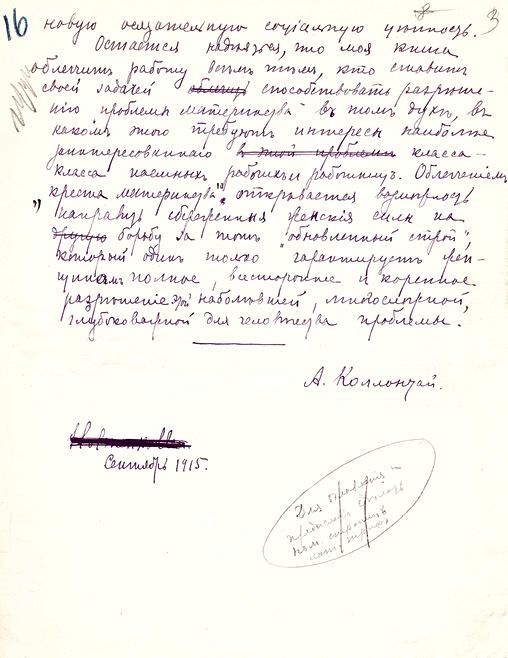 16
3
новую осязательную социальную ценность.
Остается надѣяться, что моя книга
облегчитъ работу всѣмъ тѣмъ, кто ставитъ
своей задачей способствовать разрѣше-
нію проблемы материнства въ томъ духѣ, въ
какомъ этого требуютъ интересы наиболѣе
заинтересованнаго въ этой проблемѣ класса –
класса наемныхъ рабочихъ и работницъ. Облегченіемъ
„креста материнства" открывается возможность
направить сбереженныя женскія силы на
другую борьбу за тотъ "обновленный строй",
который одинъ только гарантируетъ жен-
щинамъ полное, всестороннее и коренное
разрѣшеніе этой наболѣвшей, многосторонней,
глубоковажной для человѣчества проблемы.
А. Коллонтай.
Сентябрь 1915.
Для